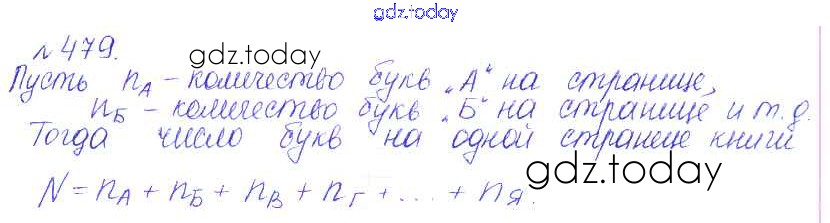 gdz.today
№ 479.
gdz.today
Пусть n_А – количество букв „А“ на странице,
n_Б – количество букв „Б“ на странице и т.д.
Тогда число букв на одной странице книги
gdz.today
N = n_А + n_Б + n_В + n_Г + ... + n_Я.